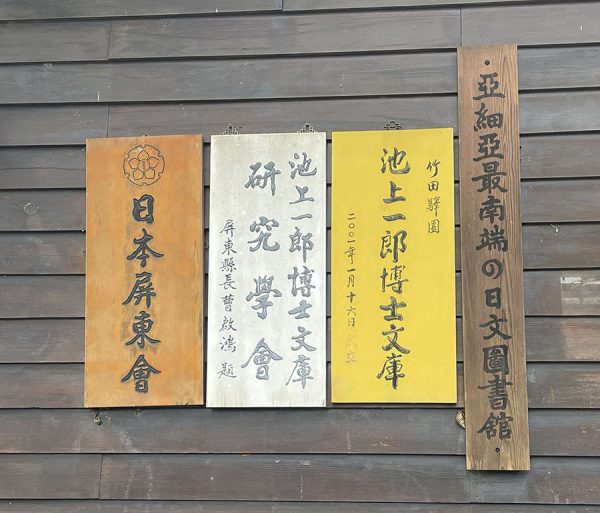 亞細亞最南端の日文圖書舘
竹田驛園
池上一郎博士文庫
二〇〇一年一月十六日
池上一郎博士文庫
研究學會
屏東縣長曹啟鴻題
日本屏東會